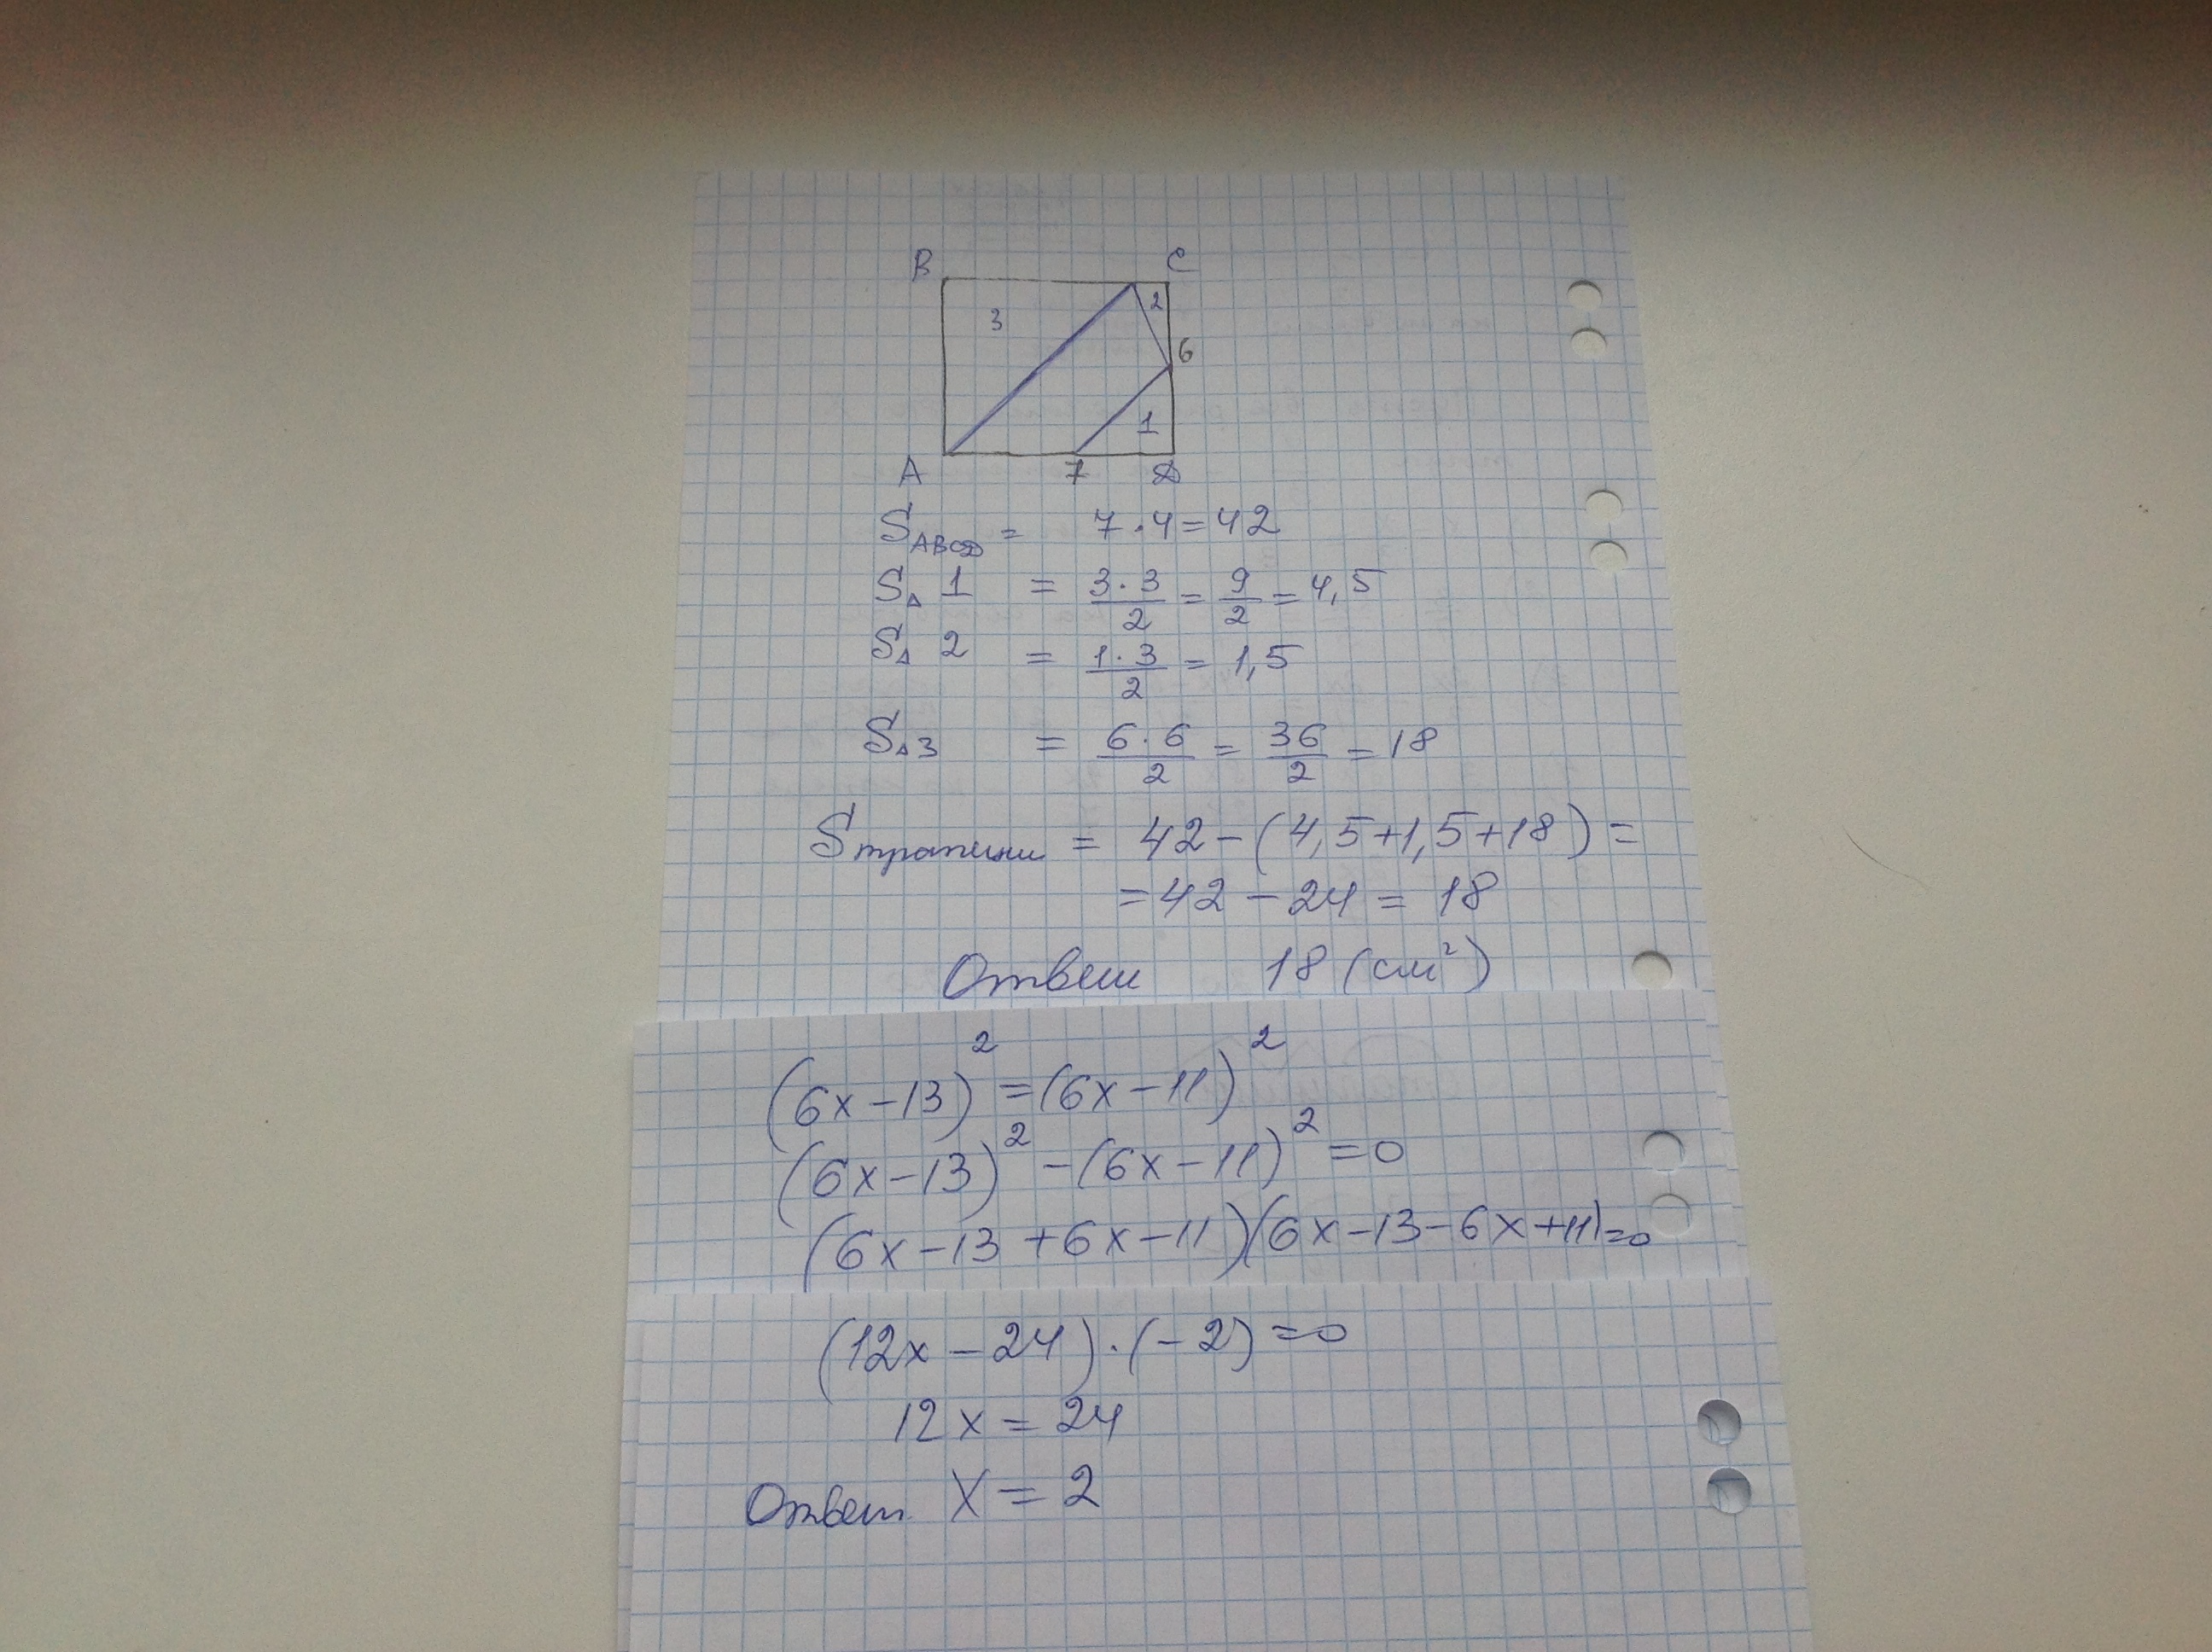 B C
3 2
6
1
A 7 D
S ABCD = 7 · 4 = 42
S∆ 1 = 3 · 3 / 2 = 9 / 2 = 4,5
S∆ 2 = 1 · 3 / 2 = 1,5
S∆3 = 6 · 6 / 2 = 36 / 2 = 18
S трапеции = 42 - (4,5+1,5+18) =
= 42 - 24 = 18
Ответ 18 (см²)
(6x - 13)² = (6x - 11)²
(6x - 13)² - (6x - 11)² = 0
(6x - 13 + 6x - 11)(6x - 13 - 6x + 11) = 0
(12x - 24) · (- 2) = 0
12x = 24
Ответ x = 2